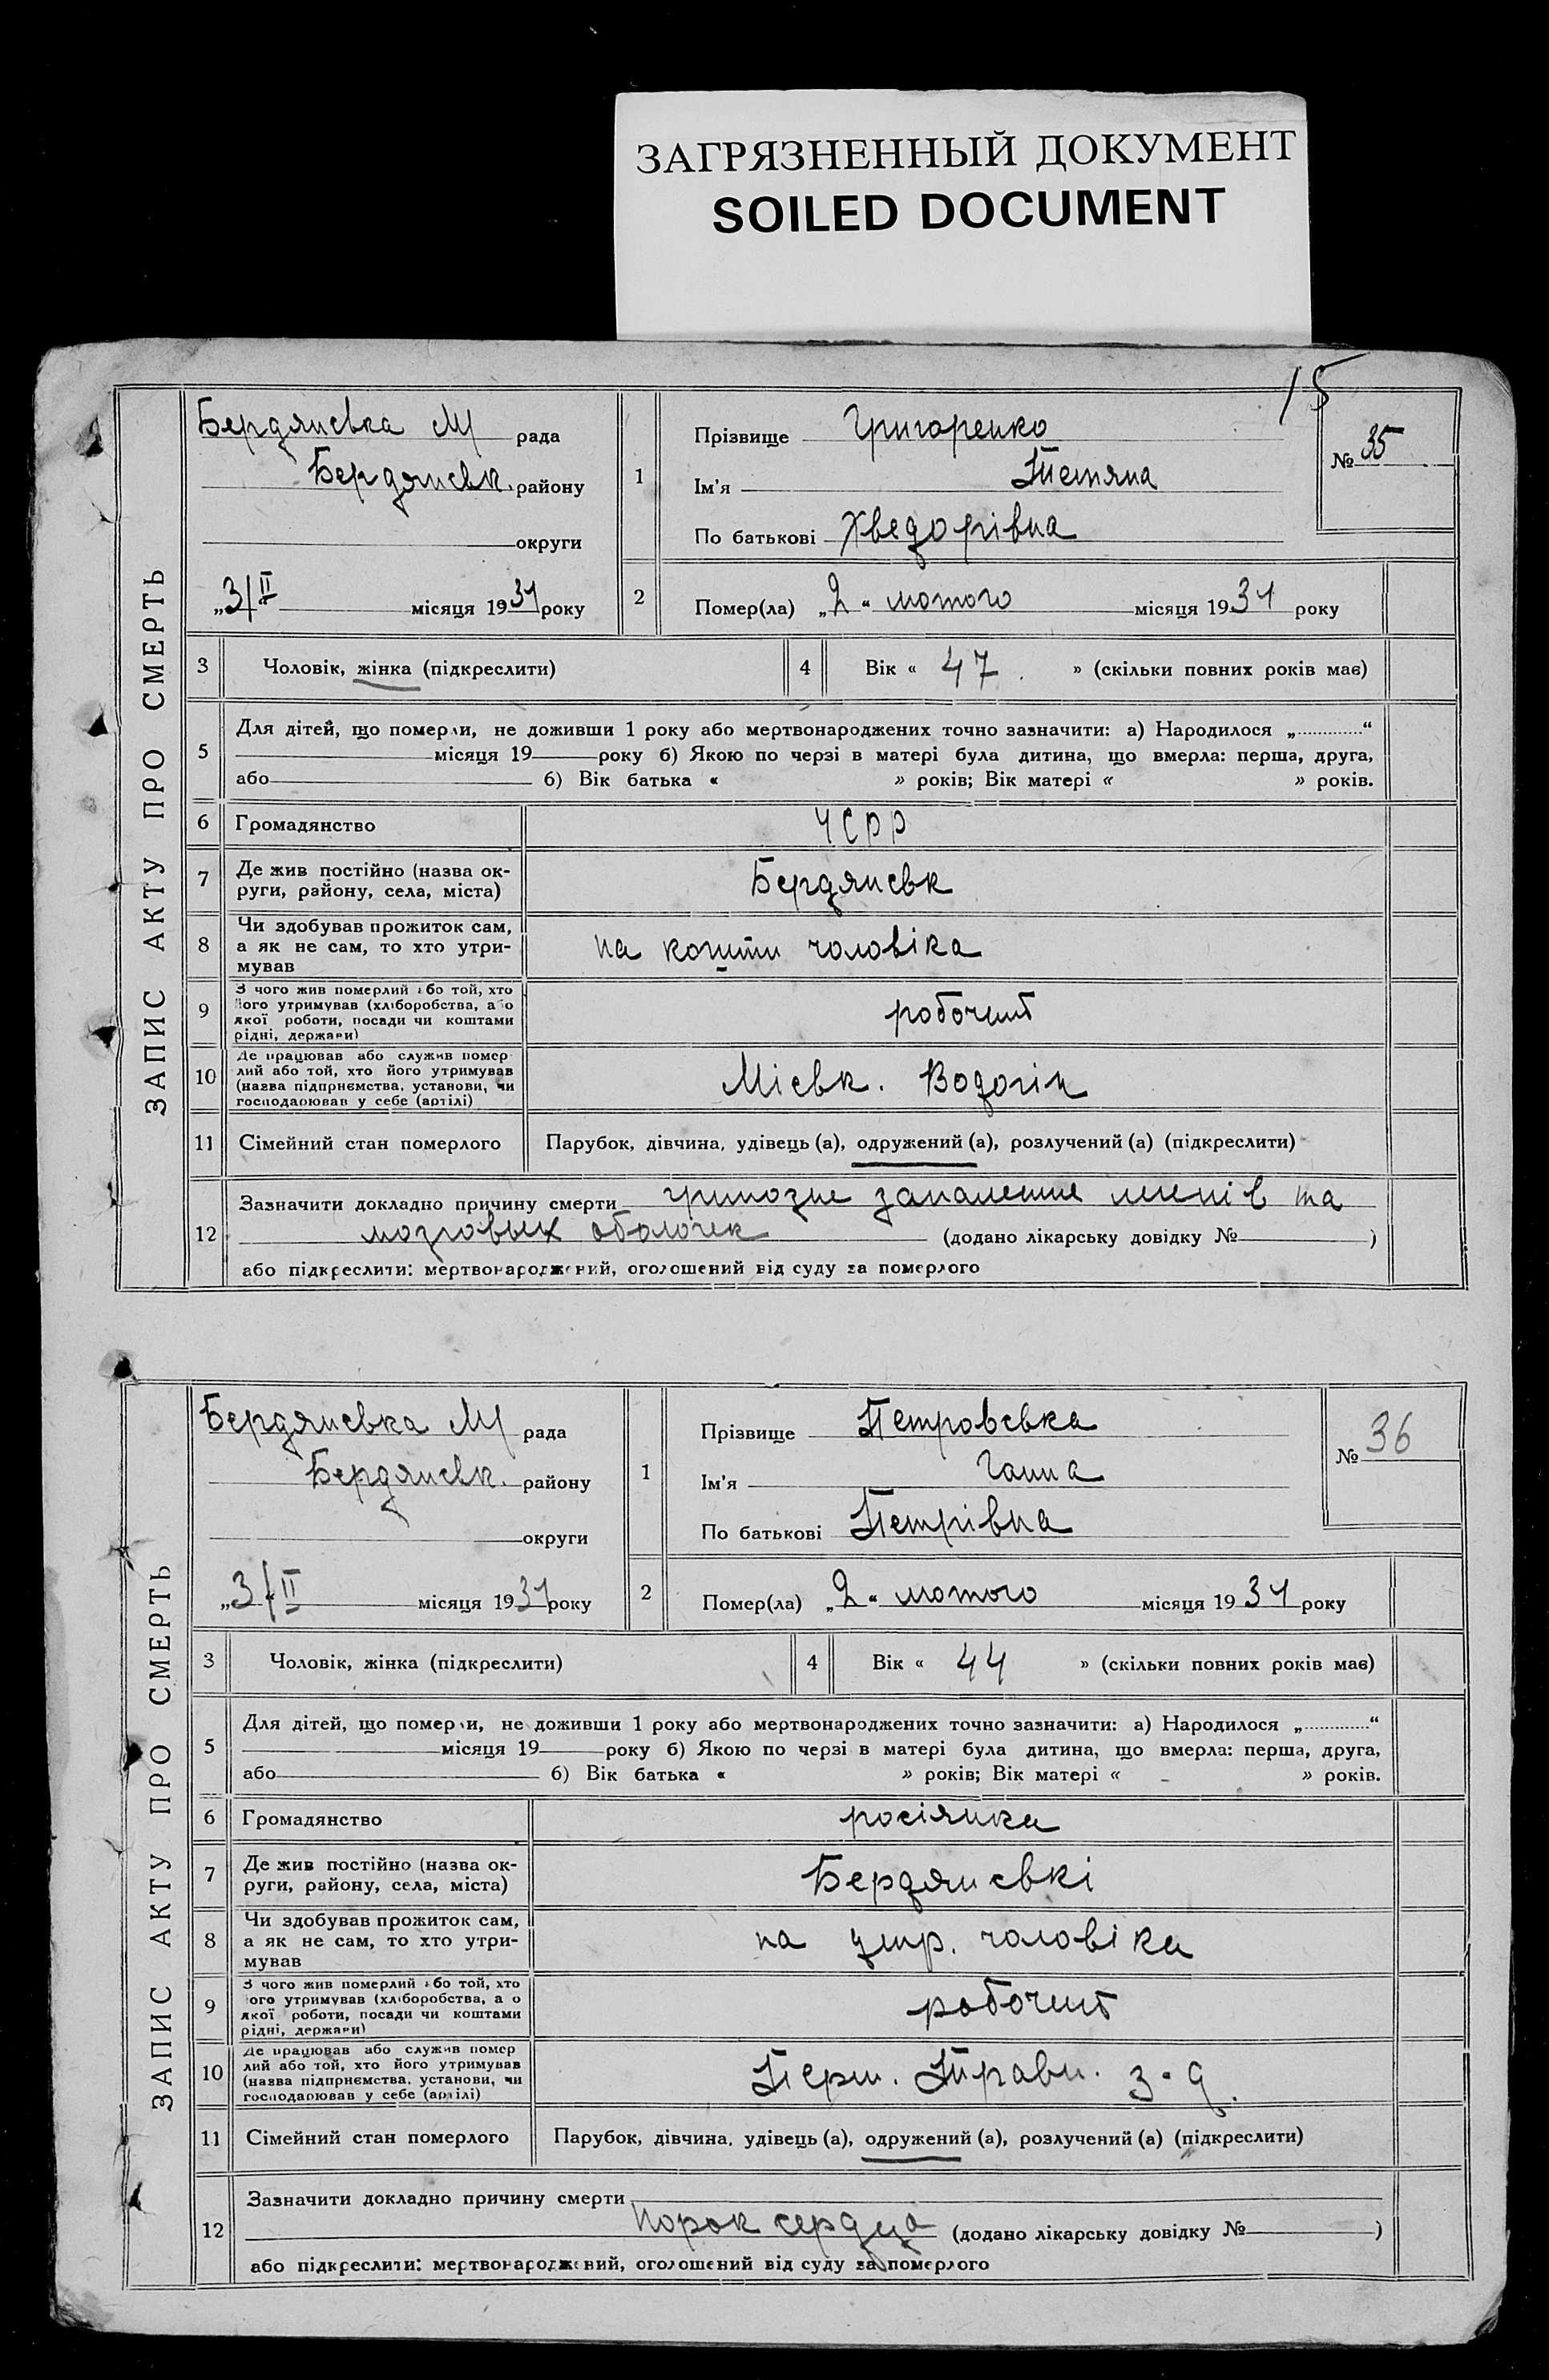 ЗАГРЯЗНЕННЫЙ ДОКУМЕНТ
SOILED DOCUMENT
15
ЗАПИС АКТУ ПРО СМЕРТЬ
Бердянська М рада
Бердянськ. району
округи
„3/II місяця 1934 року
1
Прізвище Григоренко
Ім'я Тетяна
По батькові Хведорівна
№ 35
2
Помер(ла) „2“ лютого місяця 1934 року
3 Чоловік, жінка (підкреслити)
4 Вік « 47. » (скільки повних років має)
5 Для дітей, що померли, не доживши 1 року або мертвонароджених точно зазначити: а) Народилося „ “
місяця 19 року б) Якою по черзі в матері була дитина, що вмерла: перша, друга,
або б) Вік батька « » років; Вік матері « » років.
6 Громадянство УСРР
7 Де жив постійно (назва ок-
руги, району, села, міста)
Бердянськ
8 Чи здобував прожиток сам,
а як не сам, то хто утри-
мував
на кошти чоловіка
9 З чого жив померлий або той, хто
його утримував (хліборобства, або
якої роботи, посади чи коштами
рідні, держави)
робочий
10 Де працював або служив помер
лий або той, хто його утримував
(назва підприємства, установи, чи
господарював у себе (артілі)
Міськ. Водогін
11 Сімейний стан померлого Парубок, дівчина, удівець (а), одружений (а), розлучений (а) (підкреслити)
12 Зазначити докладно причину смерти грипозне запалення легенів та
мозговых оболочек (додано лікарську довідку № )
або підкреслити: мертвонароджений, оголошений від суду за померлого
ЗАПИС АКТУ ПРО СМЕРТЬ
Бердянська М рада
Бердянськ. району
округи
„3/II місяця 1934 року
1
Прізвище Петровська
Ім'я Ганна
По батькові Петрівна
№ 36
2
Помер(ла) „2“ лютого місяця 1934 року
3 Чоловік, жінка (підкреслити)
4 Вік « 44 » (скільки повних років має)
5 Для дітей, що померли, не доживши 1 року або мертвонароджених точно зазначити: а) Народилося „ “
місяця 19 року б) Якою по черзі в матері була дитина, що вмерла: перша, друга,
або б) Вік батька « » років; Вік матері « » років.
6 Громадянство росіянка
7 Де жив постійно (назва ок-
руги, району, села, міста)
Бердянські
8 Чи здобував прожиток сам,
а як не сам, то хто утри-
мував
на утр. чоловіка
9 З чого жив померлий або той, хто
його утримував (хліборобства, або
якої роботи, посади чи коштами
рідні, держави)
робочий
10 Де працював або служив помер
лий або той, хто його утримував
(назва підприємства, установи, чи
господарював у себе (артілі)
Перш. Травн. з-д.
11 Сімейний стан померлого Парубок, дівчина, удівець (а), одружений (а), розлучений (а) (підкреслити)
12 Зазначити докладно причину смерти
порок сердца (додано лікарську довідку № )
або підкреслити: мертвонароджений, оголошений від суду за померлого